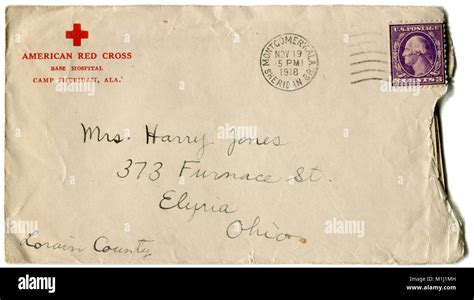 AMERICAN RED CROSS
BASE HOSPITAL
CAMP SHERIDAN, ALA.
MONTGOMERY, ALA.
NOV 19
5 PM
1918
SHERIDAN BR.
U.S. POSTAGE
3 CENTS 3
Mrs. Harry Jones
373 Furnace St.
Elyria
Ohio
Lorain County
alamy
alamy stock photo
M1J1MH
www.alamy.com